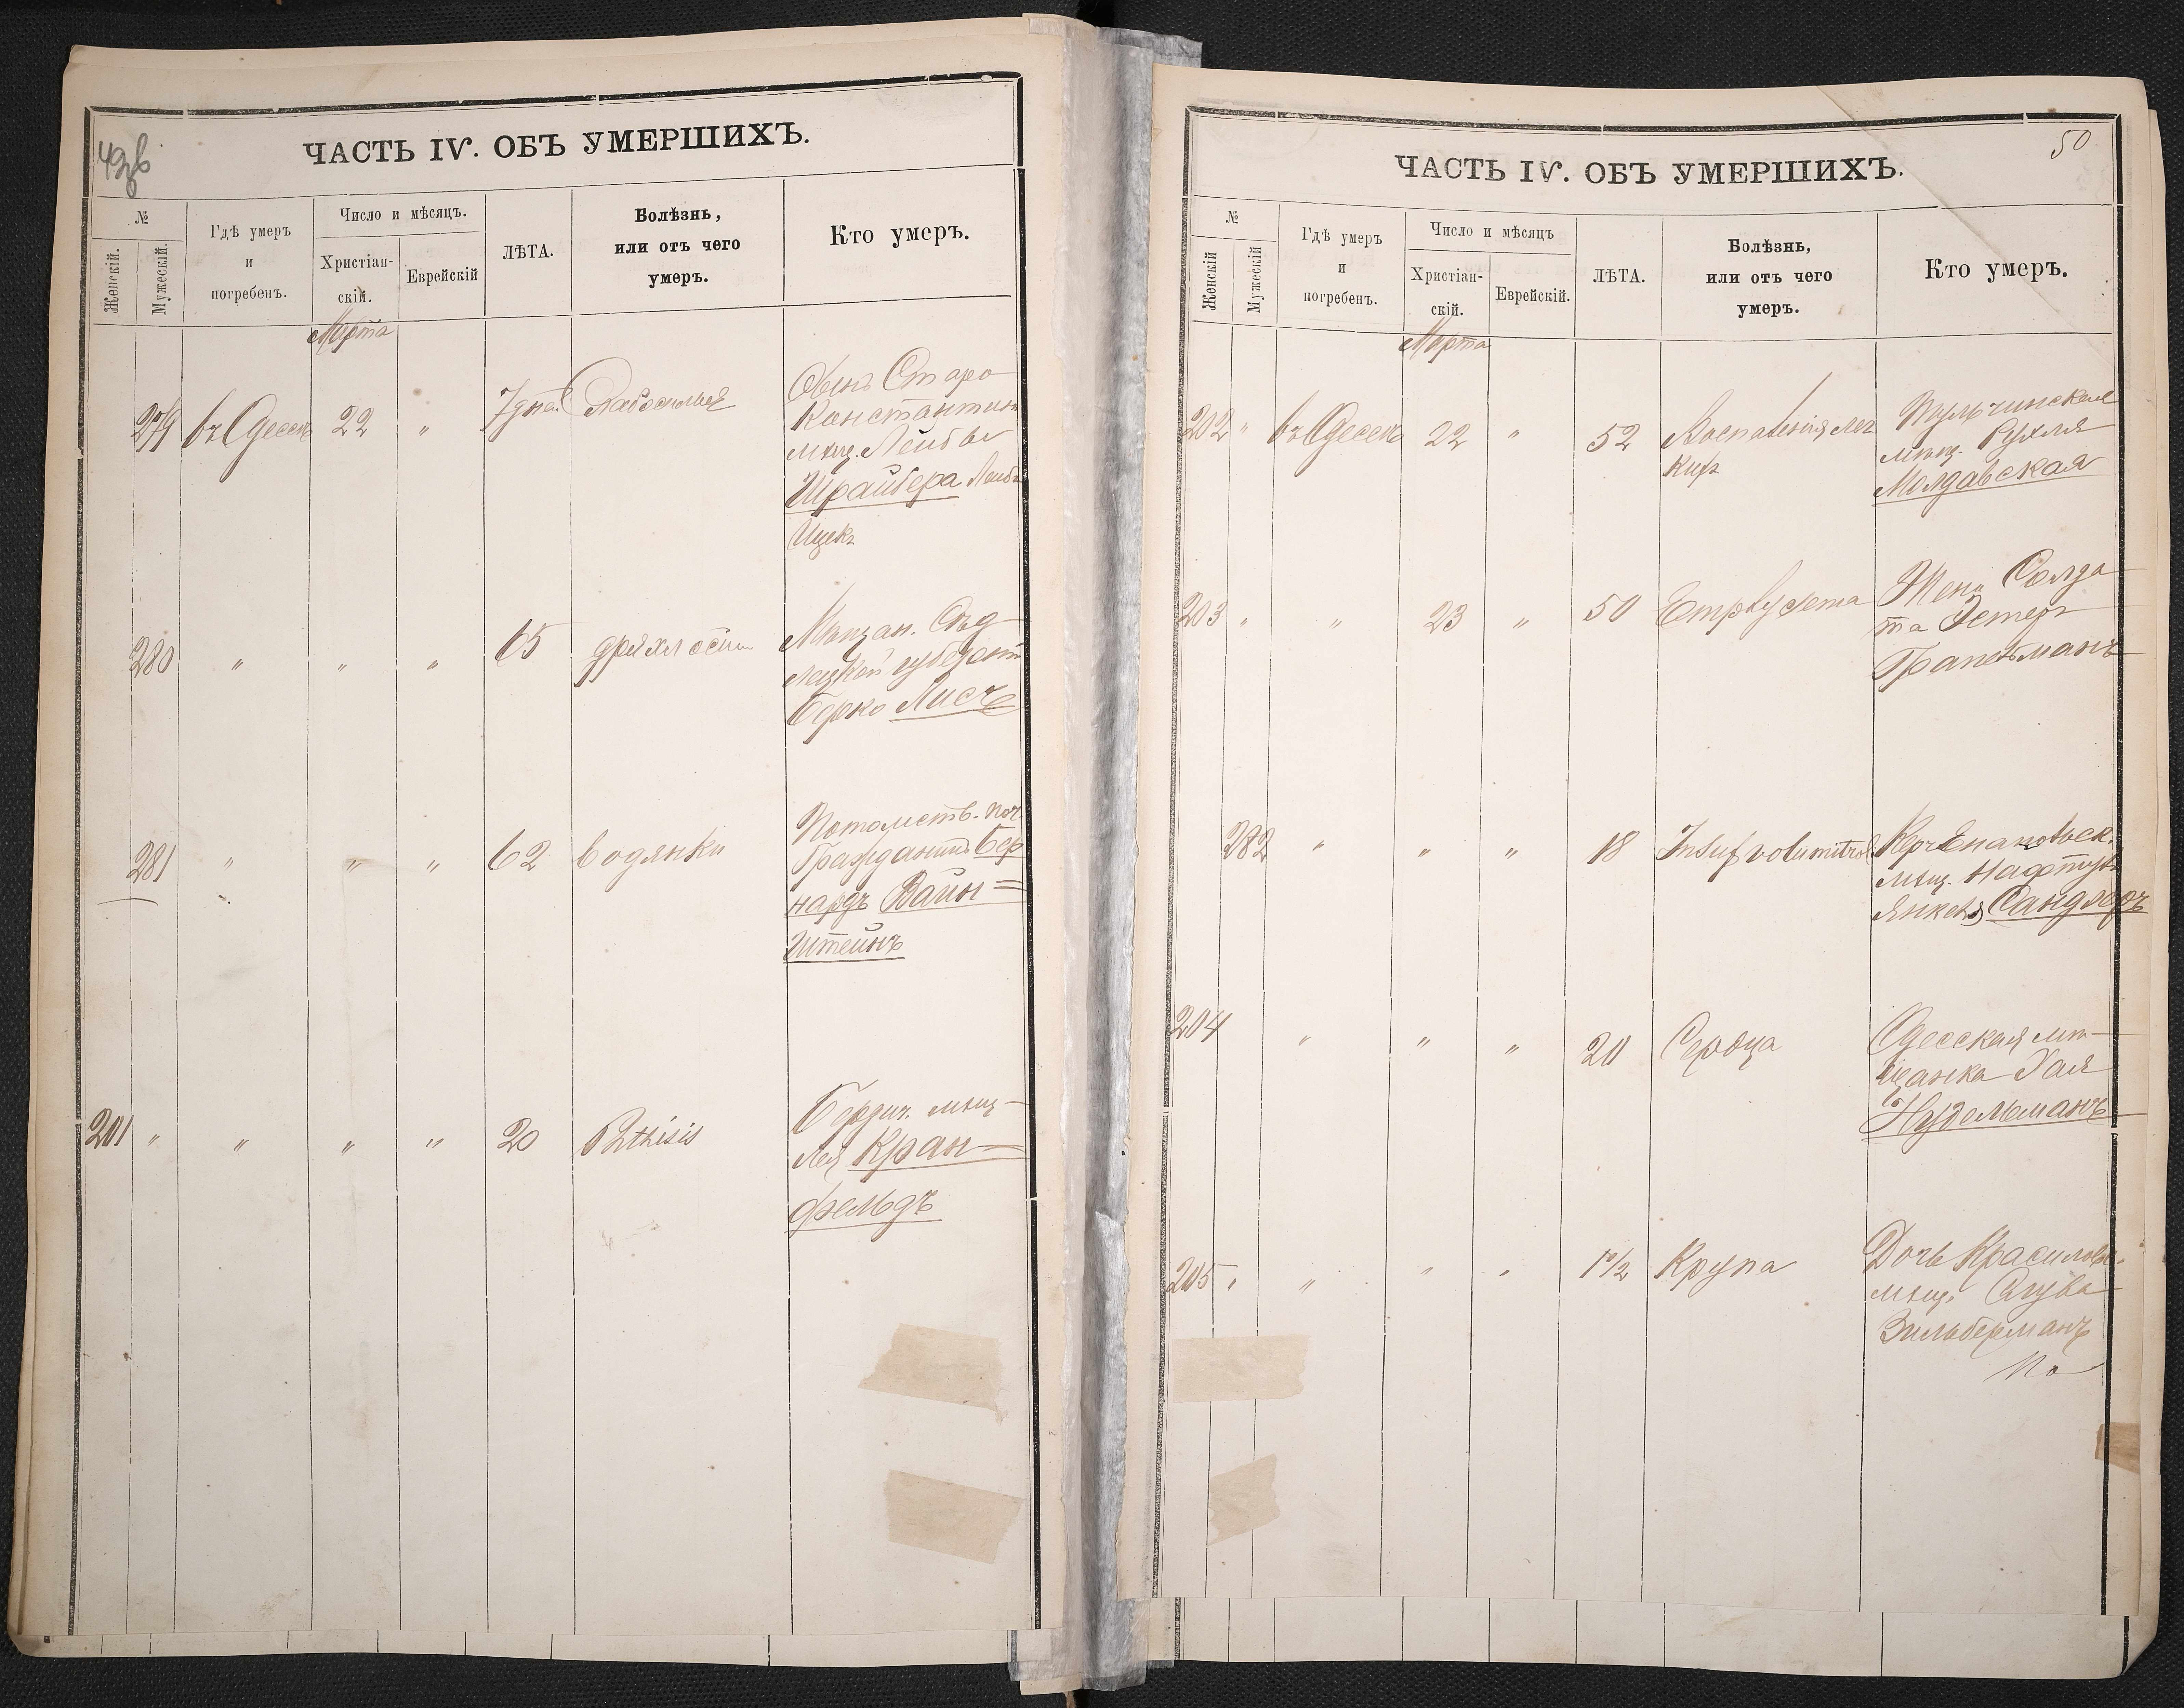 49об
ЧАСТЬ IV. ОБЪ УМЕРШИХЪ.
№
Женскій.
Мужескій.
Гдѣ умеръ
и
погребенъ.
Число и мѣсяцъ.
Христіан-
скій.
Еврейскій
ЛѢТА.
Болѣзнь,
или отъ чего
умеръ.
Кто умеръ.
Марта
279 въ Одессѣ 22 "
Сынъ Старо
Константин
мѣщ. Лейбы
Шрайбера Лейбъ
Ицекъ
280 " " " 65 дряхлости
Мѣщан. Сѣд
лецкой губерніи
Берко
281 " " " 62 водянки
Потомств. поч.
Гражданинъ Бер
нардъ Вайн=
штейнъ
201 " " " " 20 Phthisis
Бердич. мѣщ
Лея Кран=
фельдъ
50
ЧАСТЬ IV. ОБЪ УМЕРШИХЪ.
№
Женскій
Мужескій
Гдѣ умеръ
и
погребенъ.
Число и мѣсяцъ
Христіан-
скій.
Еврейскій.
ЛѢТА.
Болѣзнь,
или отъ чего
умеръ.
Кто умеръ.
Марта
202 " въ Одессѣ 22 " 52 Воспаленія лег
кихъ
Тульчинская
мѣщ. Рухля
Молдавская
203 " " 23 " 50
Жена Солда
та Эстеръ
282 " " " 18
мѣщ. Нафтулъ
Янкель Сандлеръ
204 " " " 20 Сердца
Одесская мѣ
щанка Хая
Нудельманъ
205 " " " " 1 1/2 Крупа
Дочь Красиловс.
мѣщ.
Зильберманъ